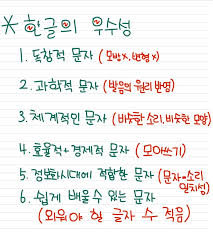 * 한글의 우수성
1. 독창적 문자 (모방x, 변형x)
2. 과학적 문자 (발음의 원리 반영)
3. 체계적인 문자 (비슷한 소리, 비슷한 모양)
4. 효율적+경제적 문자 (모아쓰기)
5. 정보화시대에 적합한 문자 (문자=소리
일치성)
6. 쉽게 배울 수 있는 문자
(외워야 할 글자 수 적음)